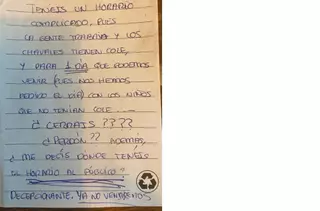 TENEIS UN HORARIO
COMPLICADO, PUES
LA GENTE TRABAJA Y LOS
CHAVALES TIENEN COLE,
Y PARA 1 DÍA QUE PODEMOS
VENIR (PUES NOS HEMOS
PEDIDO EL DÍA) CON LOS NIÑOS
QUE NO TENÍAN COLE....
¿ CERRAIS ????
¿ PERDÓN ?? ADEMÁS,
¿ ME DECÍS DÓNDE TENÉIS
EL HORARIO AL PÚBLICO?
DECEPCIONANTE. YA NO VENDREMOS